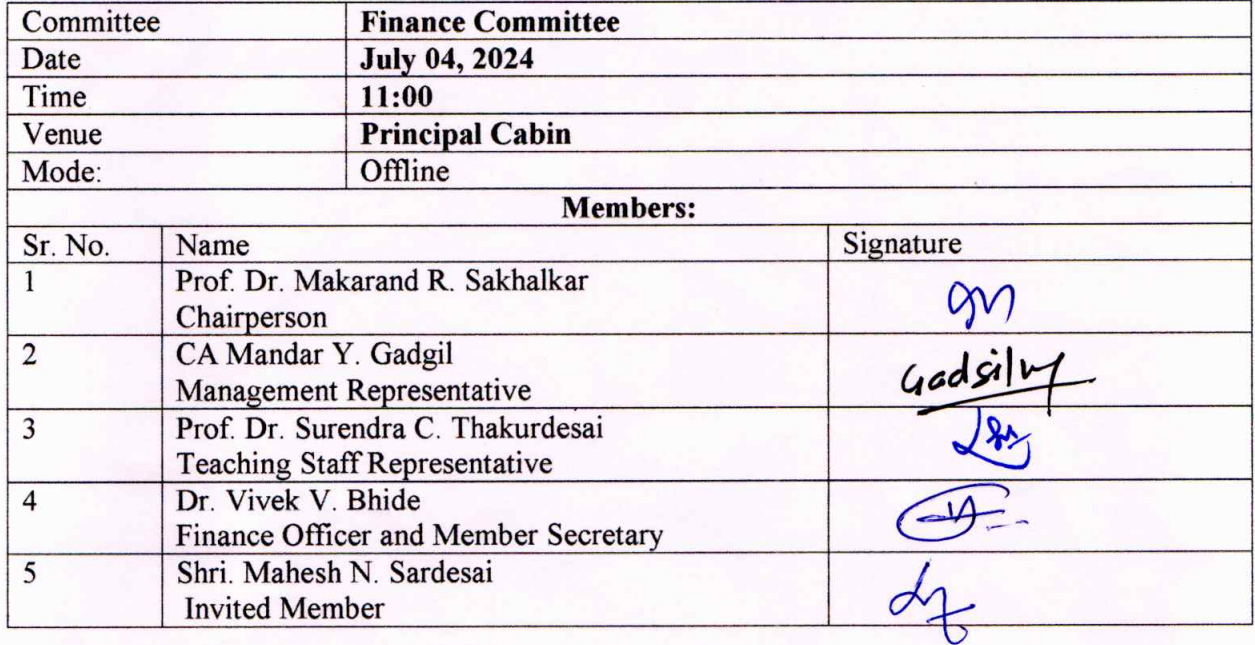 Committee Finance Committee
Date July 04, 2024
Time 11:00
Venue Principal Cabin
Mode: Offline
Members:
Sr. No. Name Signature
1 Prof. Dr. Makarand R. Sakhalkar
Chairperson
2 CA Mandar Y. Gadgil
Management Representative
3 Prof. Dr. Surendra C. Thakurdesai
Teaching Staff Representative
4 Dr. Vivek V. Bhide
Finance Officer and Member Secretary
5 Shri. Mahesh N. Sardesai
Invited Member